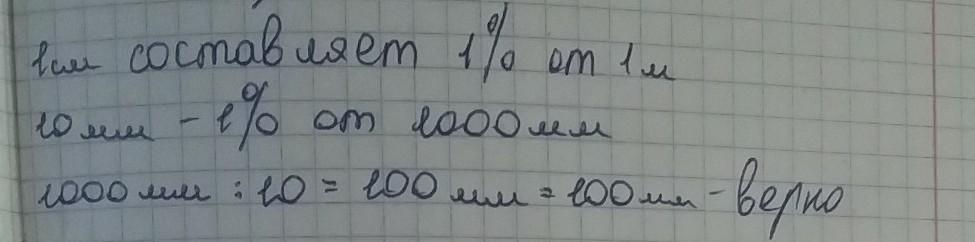 1см составляет 1% от 1м
10мм - 1% от 1000мм
1000мм : 10 = 100мм = 100мм - верно